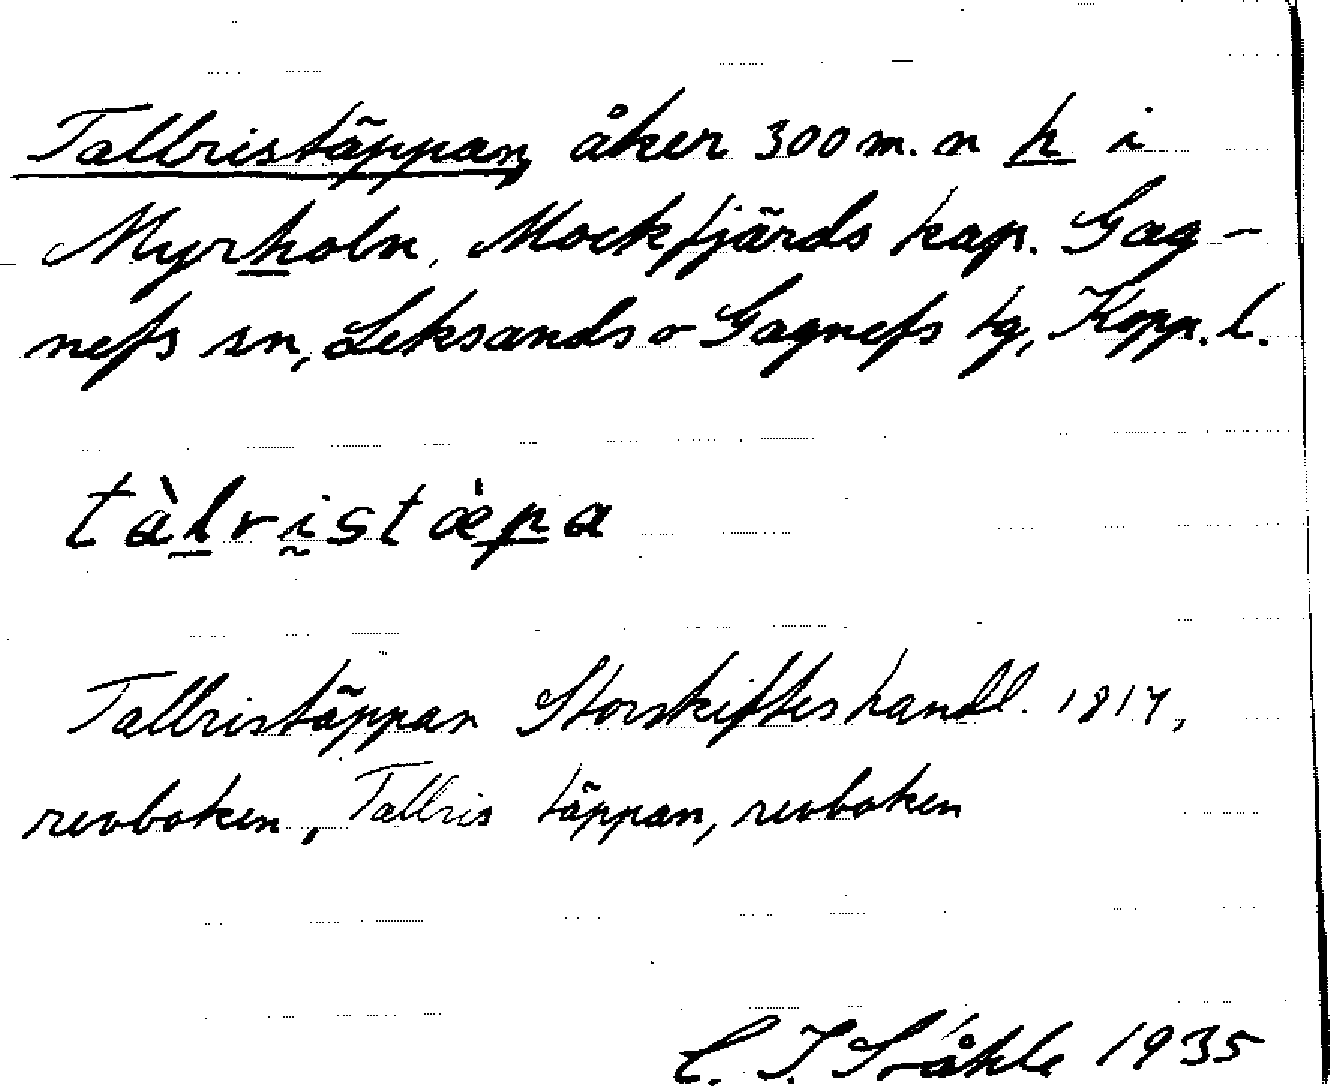 Tallbristäppan, åker 300 m. n h i
Myrholn, Mockfjärds kap. Gag-
nefs sn, Leksands o Gagnefs tg, Kopp. l.
tàlristæ̀pa
Tallbristäppan Storskifteshandl. 1817,
revboken, Tallbris täppan, revboken
C. I. Ståhle 1935